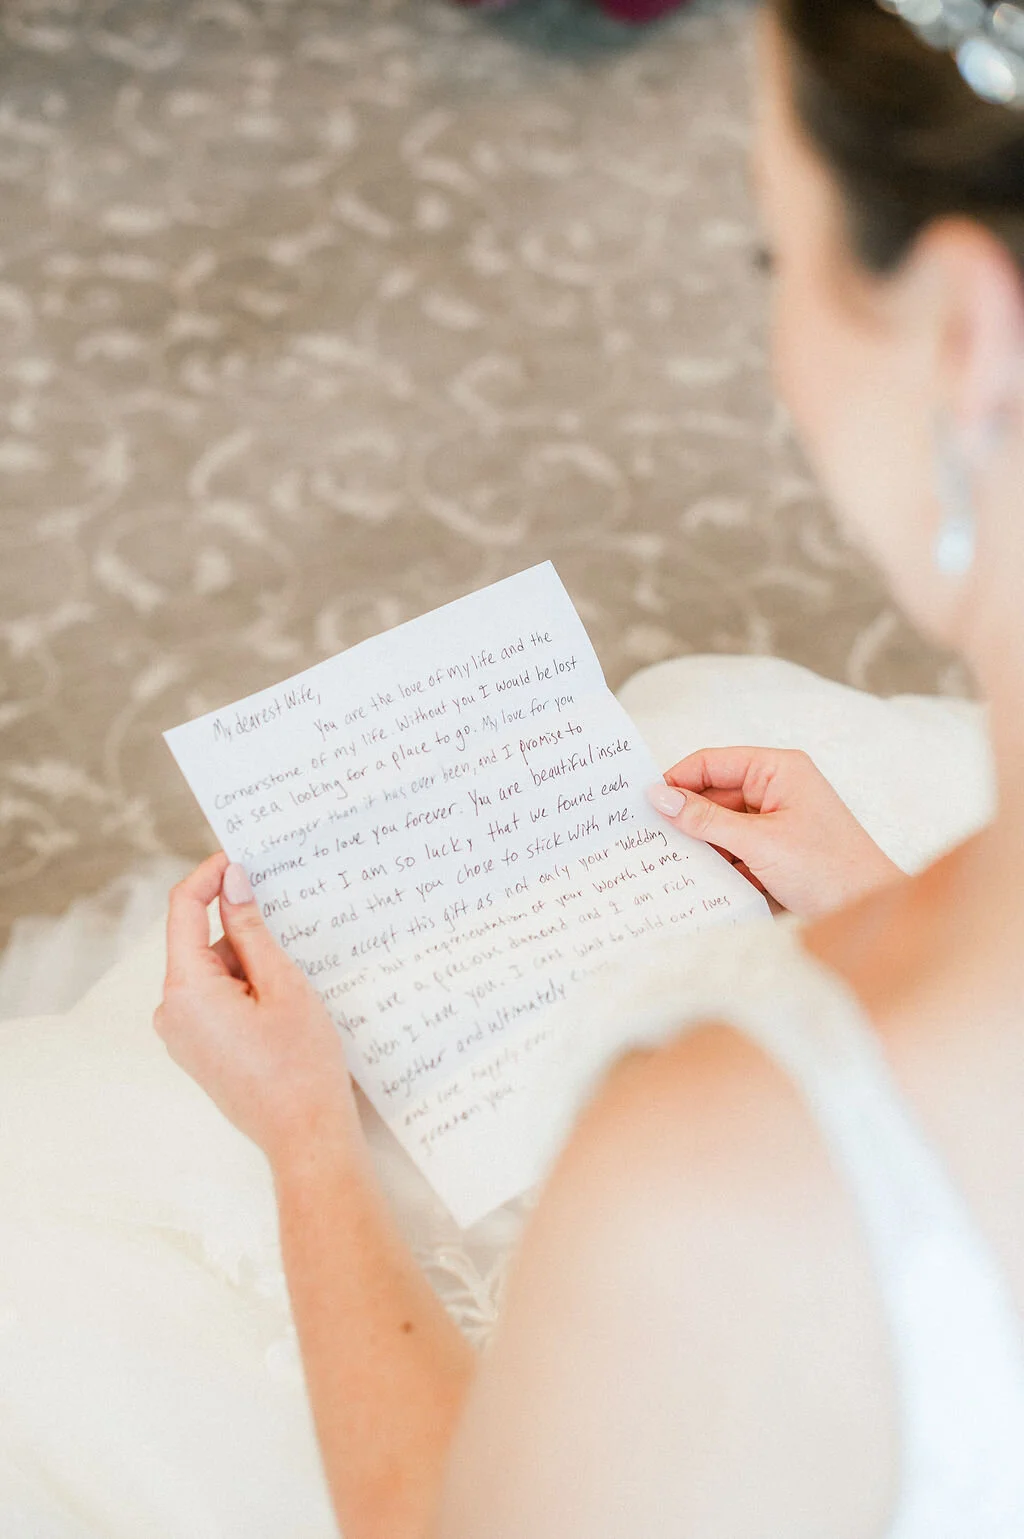 My dearest Wife,
You are the love of my life and the
cornerstone of my life. Without you I would be lost
at sea looking for a place to go. My love for you
is stronger than it has ever been, and I promise to
continue to love you forever. You are beautiful inside
and out I am so lucky that we found each
other and that you chose to stick with me.
Please accept this gift as not only your "Wedding
present", but a representation of your worth to me.
You are a precious diamond and I am rich
when I have you. I cant wait to build our lives
together and ultimately
and live happily ever
you.